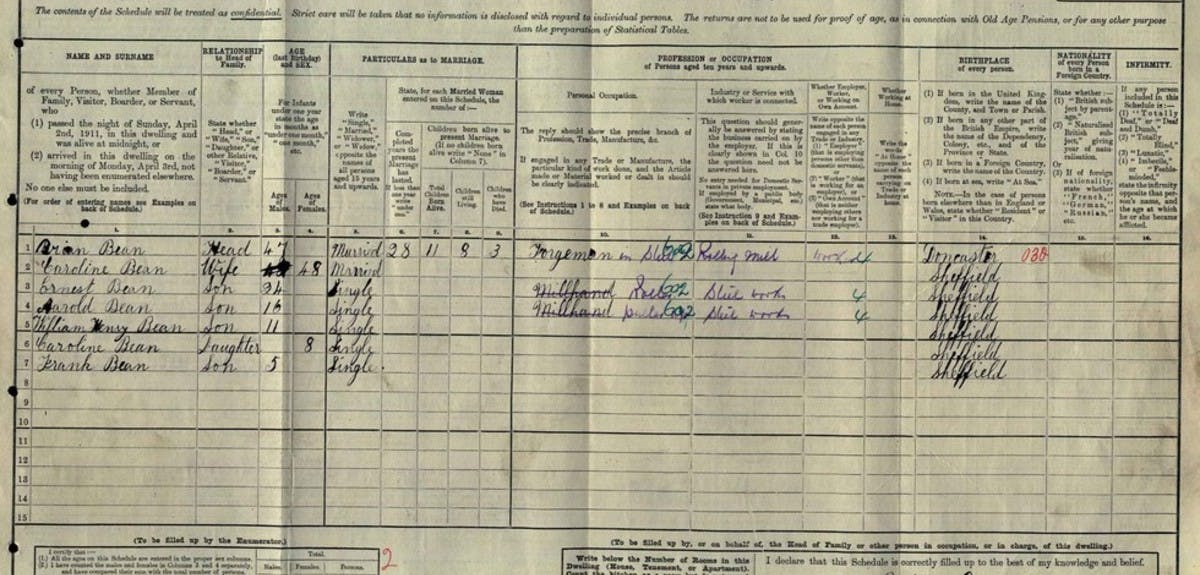 The contents of the Schedule will be treated as confidential. Strict care will be taken that no information is disclosed with regard to individual persons. The returns are not to be used for proof of age, as in connection with Old Age Pensions, or for any other purpose
than the preparation of Statistical Tables.
NAME AND SURNAME
of every Person, whether Member of
Family, Visitor, Boarder, or Servant,
who
(1) passed the night of Sunday, April
2nd, 1911, in this dwelling and
was alive at midnight, or
(2) arrived in this dwelling on the
morning of Monday, April 3rd, not
having been enumerated elsewhere.
No one else must be included.
(For order of entering names see Examples on
back of Schedule.)
RELATIONSHIP
to Head of
Family.
State whether
"Head," or
"Wife," "Son,"
"Daughter," or
other Relative,
"Visitor,"
"Boarder," or
"Servant."
AGE
(last Birthday)
and SEX.
For Infants
under one year
state the age
in months as
"under one month,"
"one month,"
etc.
Ages
of
Males.
Ages
of
Females.
PARTICULARS as to MARRIAGE.
Write
"Single,"
"Married,"
"Widower,"
or "Widow,"
opposite the
names of
all persons
aged 15 years
and upwards.
State, for each Married Woman
entered on this Schedule, the
number of:—
Completed
years the
present
Marriage
has
lasted.
If less than
one year
write
"under
one."
Children born alive to
present Marriage.
(If no children born
alive write "None" in
Column 7).
Total
Children
Born
Alive.
Children
still
Living.
Children
who
have
Died.
PROFESSION or OCCUPATION
of Persons aged ten years and upwards.
Personal Occupation.
The reply should show the precise branch of
Profession, Trade, Manufacture, &c.
If engaged in any Trade or Manufacture, the
particular kind of work done, and the Article
made or Material worked or dealt in should
be clearly indicated.
(See Instructions 1 to 8 and Examples on back
of Schedule.)
Industry or Service with
which worker is connected.
This question should generally
be answered by stating
the business carried on by
the employer. If this is
clearly shown in Col. 10
the question need not be
answered here.
No entry needed for Domestic Servants
in private employment.
If employed by a public body
(Government, Municipal, etc.)
state what body.
(See Instruction 9 and Examples
on back of Schedule.)
Whether Employer,
Worker,
or Working on
Own Account.
Whether
Working at
Home.
BIRTHPLACE
of every person.
(1) If born in the United Kingdom,
write the name of the
County, and Town or Parish.
(2) If born in any other part of
the British Empire, write
the name of the Dependency,
Colony, etc., and of the
Province or State.
(3) If born in a Foreign Country,
write the name of the Country.
(4) If born at sea, write "At Sea."
NOTE.—In the case of persons
born elsewhere than in England or
Wales, state whether "Resident" or
"Visitor" in this Country.
NATIONALITY
of every Person
born in a
Foreign Country.
State whether:—
(1) "British subject
by parentage."
(2) "Naturalised
British subject,"
giving
year of naturalisation.
Or
(3) If of foreign
nationality,
state whether
"French,"
"German,"
"Russian,"
etc.
INFIRMITY.
If any person
included in this
Schedule is:—
(1) "Totally
Deaf," or "Deaf
and Dumb,"
(2) "Totally
Blind,"
(3) "Lunatic,"
(4) "Imbecile,"
or "Feeble-minded,"
state the infirmity
opposite that person's
name, and
the age at which
he or she became
afflicted.
1. 2. 3. 4. 5. 6. 7. 8. 9. 10. 11. 12. 13. 14. 15. 16.
1 Bean Head 47 Married 28 11 8 3 Forgeman in Rolling Mill Worker Doncaster 038
2 Caroline Bean Wife 48 Married Sheffield
3 Ernest Bean Son 24 Single Millhand Steel works 4 Sheffield
4 Harold Bean Son 16 Single Millhand Steel works 4 Sheffield
5 William Henry Bean Son 11 Single Sheffield
6 Caroline Bean Daughter 8 Single Sheffield
7 Frank Bean Son 5 Single. Sheffield
8
9
10
11
12
13
14
15
(To be filled up by the Enumerator.)
I certify that:—
(1.) All the ages on this Schedule are entered in the proper sex columns.
(2.) I have counted the males and females in Columns 3 and 4 separately,
and have compared their sum with the total number of persons.
Total.
Males. Females. Persons.
2
(To be filled up by, or on behalf of, the Head of Family or other person in occupation, or in charge, of this dwelling.)
Write below the Number of Rooms in this
Dwelling (House, Tenement, or Apartment).
I declare that this Schedule is correctly filled up to the best of my knowledge and belief.